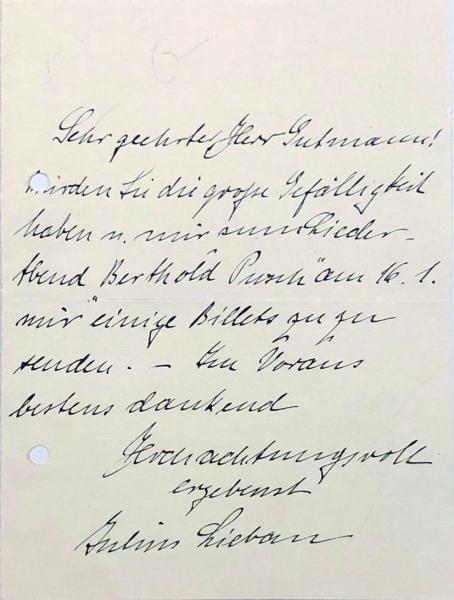 Sehr geehrter Herr Gutmann!
Würden Sie die große Gefälligkeit
haben u. mir zum Lieder-
Abend Berthold Pusch am 16. 1.
mir einige Billets zu zu
senden. – Im Voraus
bestens dankend
Hochachtungsvoll
ergebenst
Julius Lieban